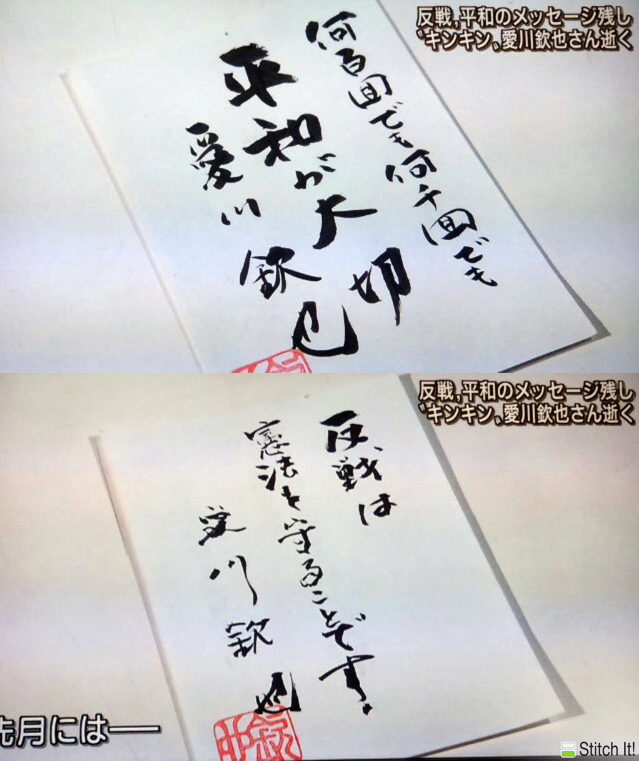 反戦,平和のメッセージ残し
“キンキン„愛川欽也さん逝く
何百回でも何千回でも
平和が大切
愛川欽也
反戦,平和のメッセージ残し
“キンキン„愛川欽也さん逝く
反戦は
憲法を守ることです。
愛川欽也
先月には──
Stitch It!